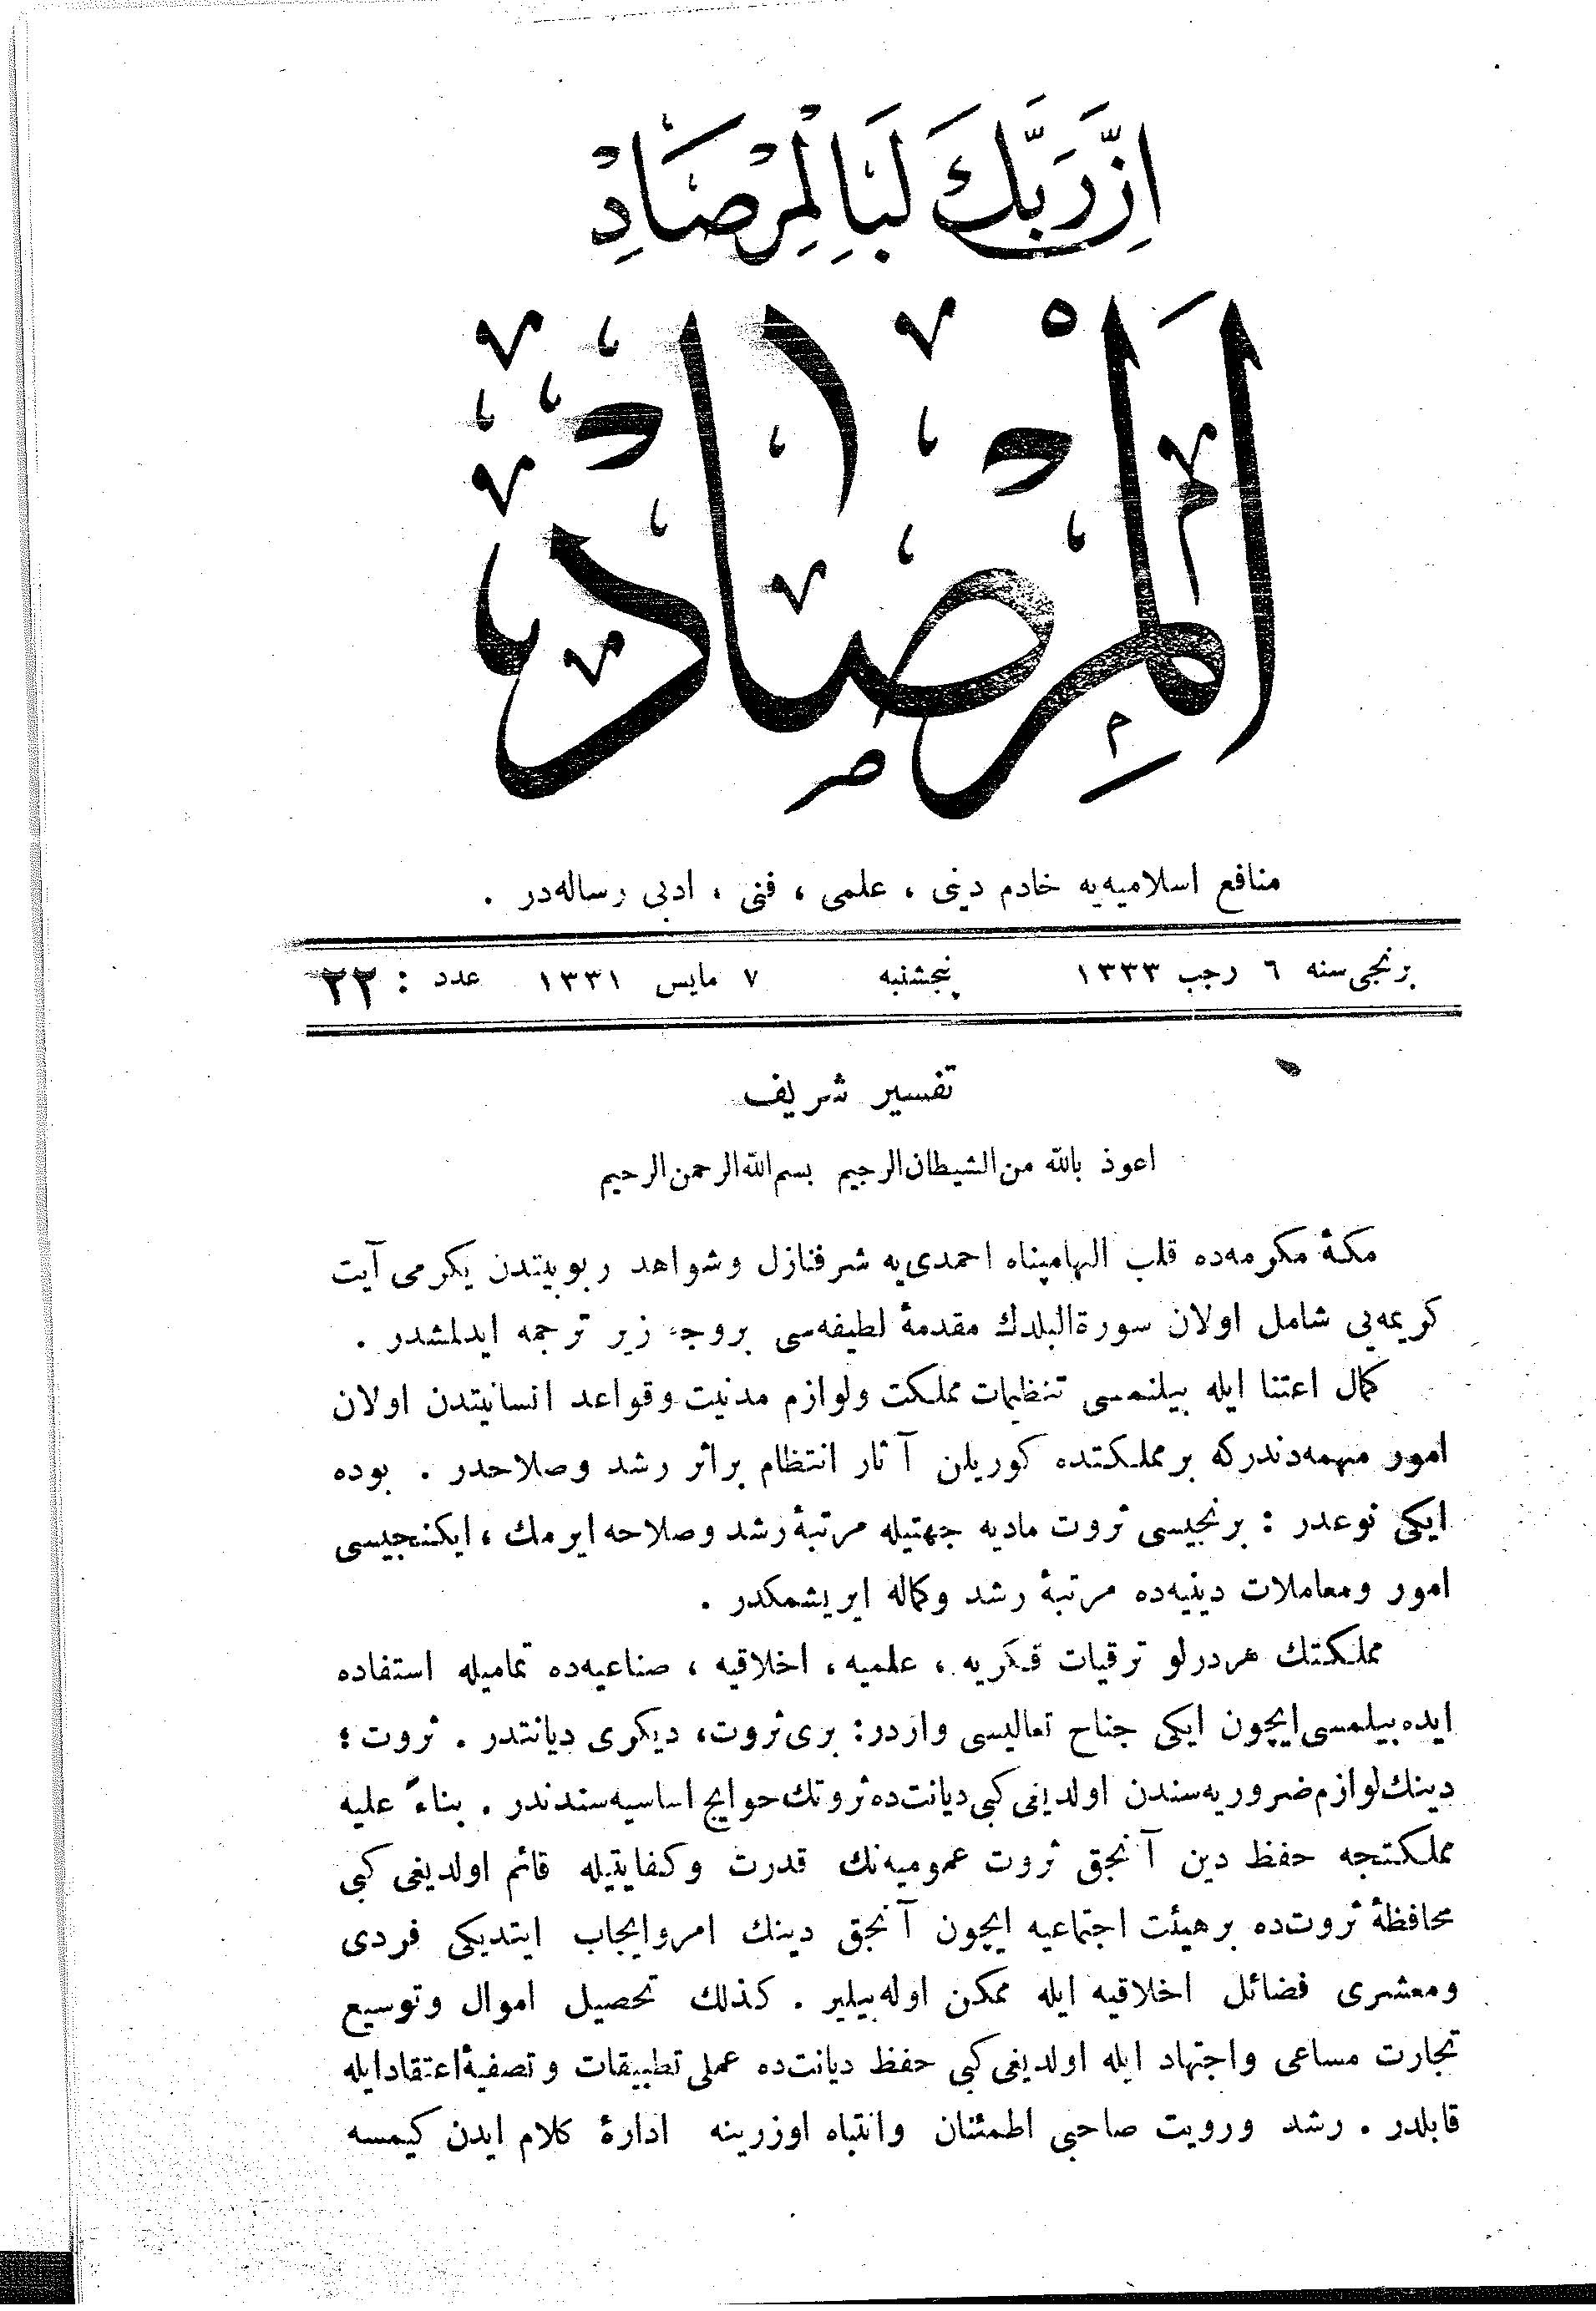 اِنَّ رَبَّكَ لَبِالْمِرْصَادِ
اَلْمِرْصَادْ
منافع اسلامیه‌یه خادم دینی ، علمی ، فنی ، ادبی رساله‌در .
برنجی سنه ٦ رجب ١٣٣٣ پنجشنبه ٧ مایس ١٣٣١ عدد : ٢٢
تفسیر شریف
اعوذ بالله من‌الشیطان‌الرجیم بسم‌الله‌الرحمن‌الرحیم
مكهٔ مكرمه‌ده قلب الهامپناه احمدی‌یه شرفنازل وشواهد ربوبیتدن یكرمی آیت
كریمه‌یی شامل اولان سورة‌البلدك مقدمهٔ لطیفه‌سی بروجه زیر ترجمه ایدلمشدر .
كمال اعتنا ایله بیلنمسی تنظیمات مملكت ولوازم مدنیت وقواعد انسانیتدن اولان
امور مهمه‌دندركه برمملكتده كوریلن آثار انتظام براثر رشد وصلاحدر . بوده
ایكی نوعدر : برنجیسی ثروت مادیه جهتیله مرتبهٔ رشد وصلاحه ایرمك ، ایكنجیسی
امور ومعاملات دینیه‌ده مرتبهٔ رشد وكماله ایریشمكدر .
مملكتك هردرلو ترقیات فكریه ، علمیه ، اخلاقیه ، صناعیه‌ده تمامیله استفاده
ایده بیلمسی ایچون ایكی جناح تعالیسی واردر: بری ثروت، دیكری دیانتدر . ثروت ؛
دینك لوازم ضروریه‌سندن اولدیغی كبی دیانت‌ده ثروتك حوایج اساسیه‌سندندر . بناءً علیه
مملكتجه حفظ دین آنجق ثروت عمومیه‌نك قدرت وكفایتیله قائم اولدیغی كبی
محافظهٔ ثروت‌ده برهیئت اجتماعیه ایچون آنجق دینك امروایجاب ایتدیكی فردی
ومعشری فضائل اخلاقیه ایله ممكن اوله‌بیلیر . كذلك تحصیل اموال وتوسیع
تجارت مساعی واجتهاد ایله اولدیغی كبی حفظ دیانت‌ده عملی تطبیقات وتصفیهٔ اعتقاد ایله
قابلدر . رشد ورویت صاحبی اطمئنان وانتباه اوزرینه ادارهٔ كلام ایدن كیمسه